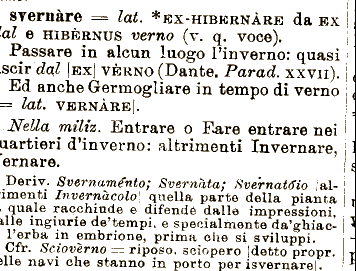 svernàre = lat. *EX-HIBERNÀRE da EX
e HIBÈRNUS verno (v. q. voce).
Passare in alcun luogo l'inverno: quasi
dal |EX| VÈRNO (Dante. Parad. XXVII).
Ed anche Germogliare in tempo di verno
= lat. VERNÀRE|.
Nella miliz. Entrare o Fare entrare nei
uartieri d'inverno: altrimenti Invernare,
ernare.
Deriv. Svernaménto; Svernàta; Svernatóio |al-
rimenti Invernàcolo| quella parte della pianta
quale racchinde e difende dalle impressioni,
alle ingiurie de'tempi. e specialmente da'ghiac-
l'erba in embrione, prima che si sviluppi.
Cfr. Sciovèrno = riposo. sciopero |detto propr.
elle navi che stanno in porto per isvernare|.